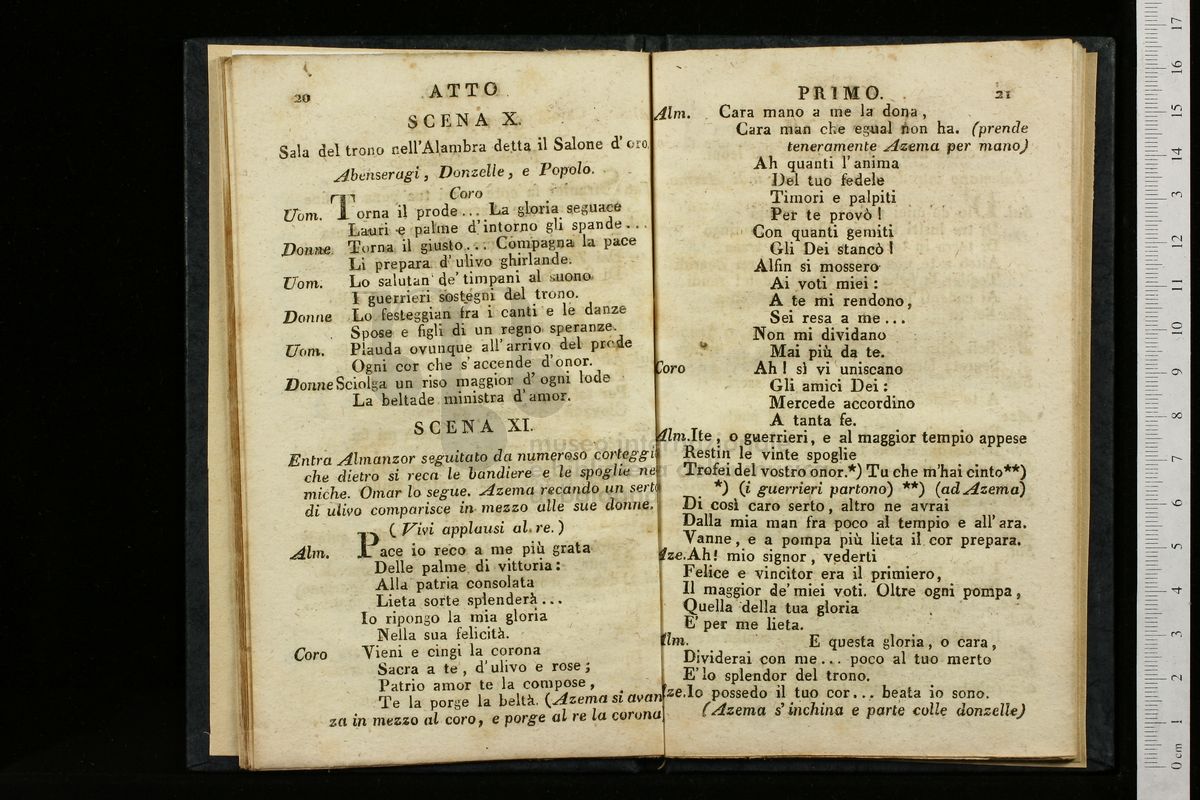 20
ATTO
SCENA X.
Sala del trono nell'Alambra detta il Salone d'oro.
Abenseragi, Donzelle, e Popolo.
Coro
Uom. Torna il prode... La gloria seguace
Lauri e palme d'intorno gli spande...
Donne Torna il giusto... Compagna la pace
Li prepara d'ulivo ghirlande.
Uom. Lo salutan de' timpani al suono
I guerrieri sostegni del trono.
Donne Lo festeggian fra i canti e le danze
Spose e figli di un regno speranze.
Uom. Plauda ovunque all'arrivo del prode
Ogni cor che s'accende d'onor.
Donne Sciolga un riso maggior d'ogni lode
La beltade ministra d'amor.
SCENA XI.
Entra Almanzor seguitato da numeroso corteggi
che dietro si reca le bandiere e le spoglie ne
miche. Omar lo segue. Azema recando un serto
di ulivo comparisce in mezzo alle sue donne.
(Vivi applausi al re.)
Alm. Pace io reco a me più grata
Delle palme di vittoria:
Alla patria consolata
Lieta sorte splenderà...
Io ripongo la mia gloria
Nella sua felicità.
Coro Vieni e cingi la corona
Sacra a te, d'ulivo e rose;
Patrio amor te la compose,
Te la porge la beltà. (Azema si avan
za in mezzo al coro, e porge al re la corona
PRIMO.
21
Alm. Cara mano a me la dona,
Cara man che egual non ha. (prende
teneramente Azema per mano)
Ah quanti l'anima
Del tuo fedele
Timori e palpiti
Per te provò!
Con quanti gemiti
Gli Dei stancò!
Alfin si mossero
Ai voti miei:
A te mi rendono,
Sei resa a me...
Non mi dividano
Mai più da te.
Coro Ah! sì vi uniscano
Gli amici Dei:
Mercede accordino
A tanta fe.
Alm. Ite, o guerrieri, e al maggior tempio appese
Restin le vinte spoglie
Trofei del vostro onor.*) Tu che m'hai cinto**)
*) (i guerrieri partono) **) (ad Azema)
Di così caro serto, altro ne avrai
Dalla mia man fra poco al tempio e all'ara.
Vanne, e a pompa più lieta il cor prepara.
Aze. Ah! mio signor, vederti
Felice e vincitor era il primiero,
Il maggior de' miei voti. Oltre ogni pompa,
Quella della tua gloria
E' per me lieta.
Alm. E questa gloria, o cara,
Dividerai con me... poco al tuo merto
E' lo splendor del trono.
Aze. Io possedo il tuo cor... beata io sono.
(Azema s'inchina e parte colle donzelle)